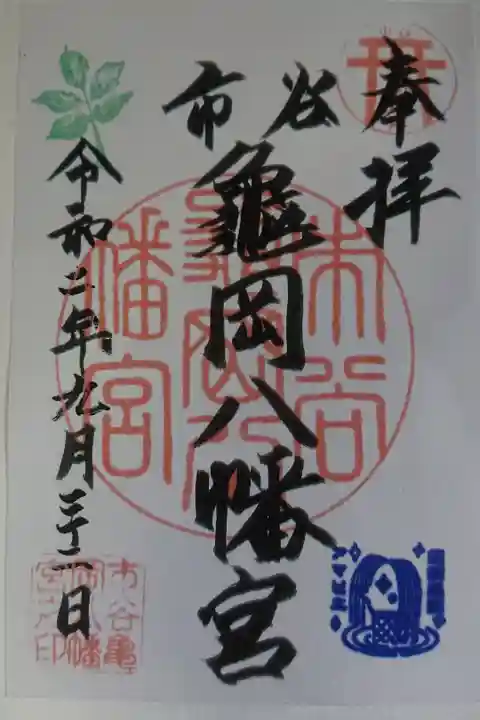 奉拝
市谷
龜岡八幡宮
令和二年九月二十二日
市谷
龜岡八
幡宮
市谷亀
岡八幡
宮之印